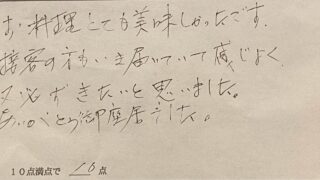 お料理とても美味しかったです。
接客の方もいき届いていて感じよく、
又必ずきたいと思いました。
ありがとう御座居ました。
10点満点で 10点